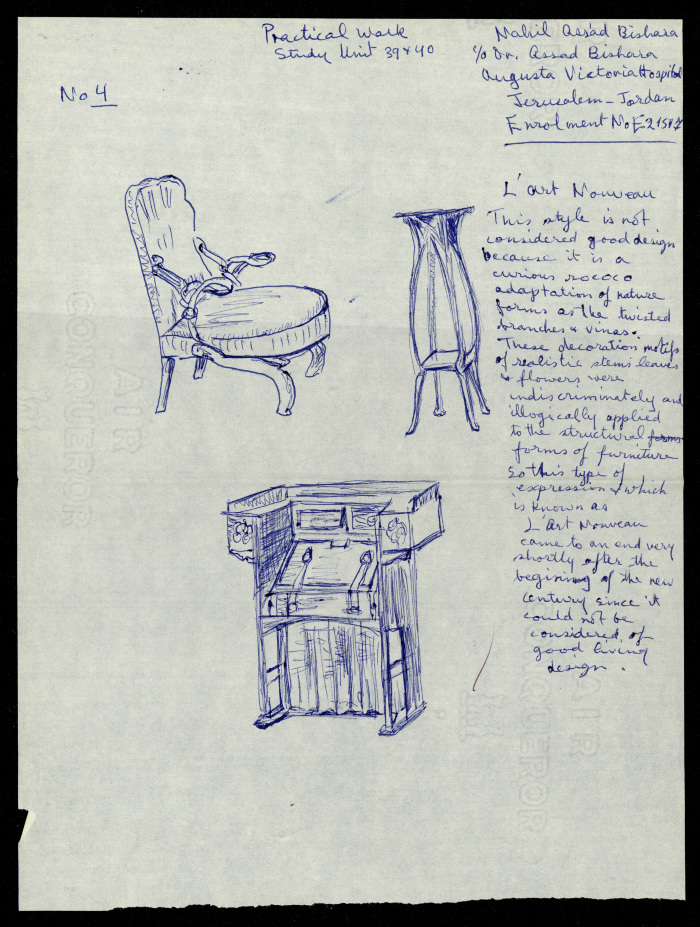 Practical Work
Study Unit 39 & 40
Nahil Assad Bishara
c/o Dr. Assad Bishara
Augusta Victoria Hospital
Jerusalem - Jordan
Enrolment No E
No 4
L'art Nouveau
This style is not
considered good design
because it is a
curious rococo
adaptation of nature
forms as the twisted
branches & vines.
These decoration motifs
of realistic stems leaves
& flowers were
indiscriminately and
illogically applied
to the structural forms
forms of furniture
so this type of
expression which
is known as
L'Art Nouveau
came to an end very
shortly after the
begining of the new
century since it
could not be
considered of
good living
design.
AIR
CONQUEROR
AIR
CONQUEROR